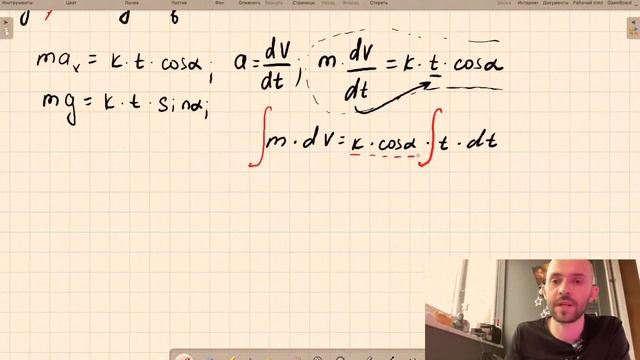 Инструменты Цвет Линия Ластик Фон Отменить Вернуть Страницы Назад Далее Стереть Доска Интернет Документы Рабочий стол OpenBoard
y g
maₓ = k·t·cosα; a = dV/dt; m·dV/dt = k·t·cosα
mg = k·t·sinα;
∫m·dV = k·cosα·∫t·dt